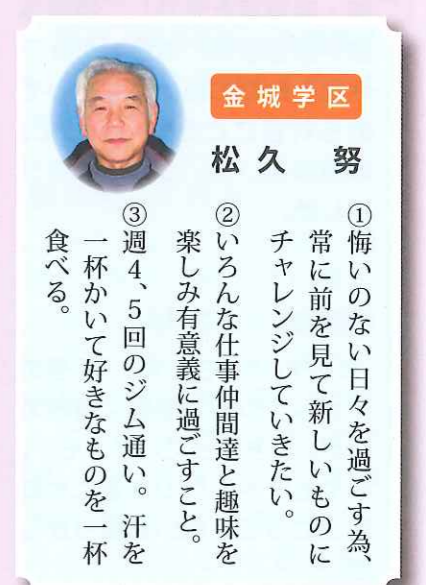 金城学区
松久 努
①悔いのない日々を過ごす為、
常に前を見て新しいものに
チャレンジしていきたい。
②いろんな仕事仲間達と趣味を
楽しみ有意義に過ごすこと。
③週4、5回のジム通い。汗を
一杯かいて好きなものを一杯
食べる。